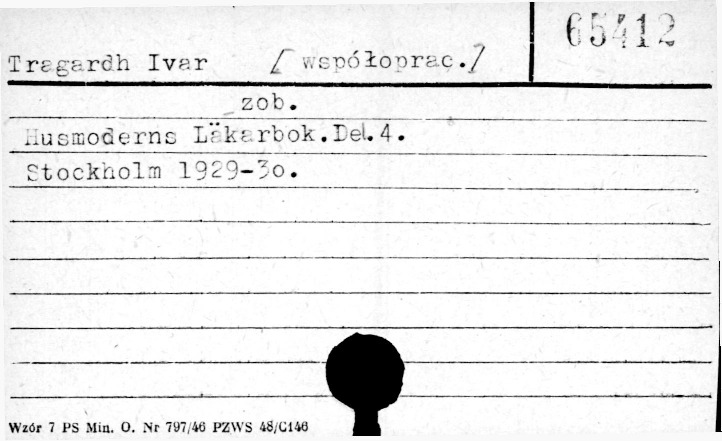 65412
Tragardh Ivar [ współoprac./
zob.
Husmoderns Läkarbok.Del.4.
Stockholm 1929-3o.
Wzór 7 PS Min. O. Nr 797/46 PZWS 48/C146